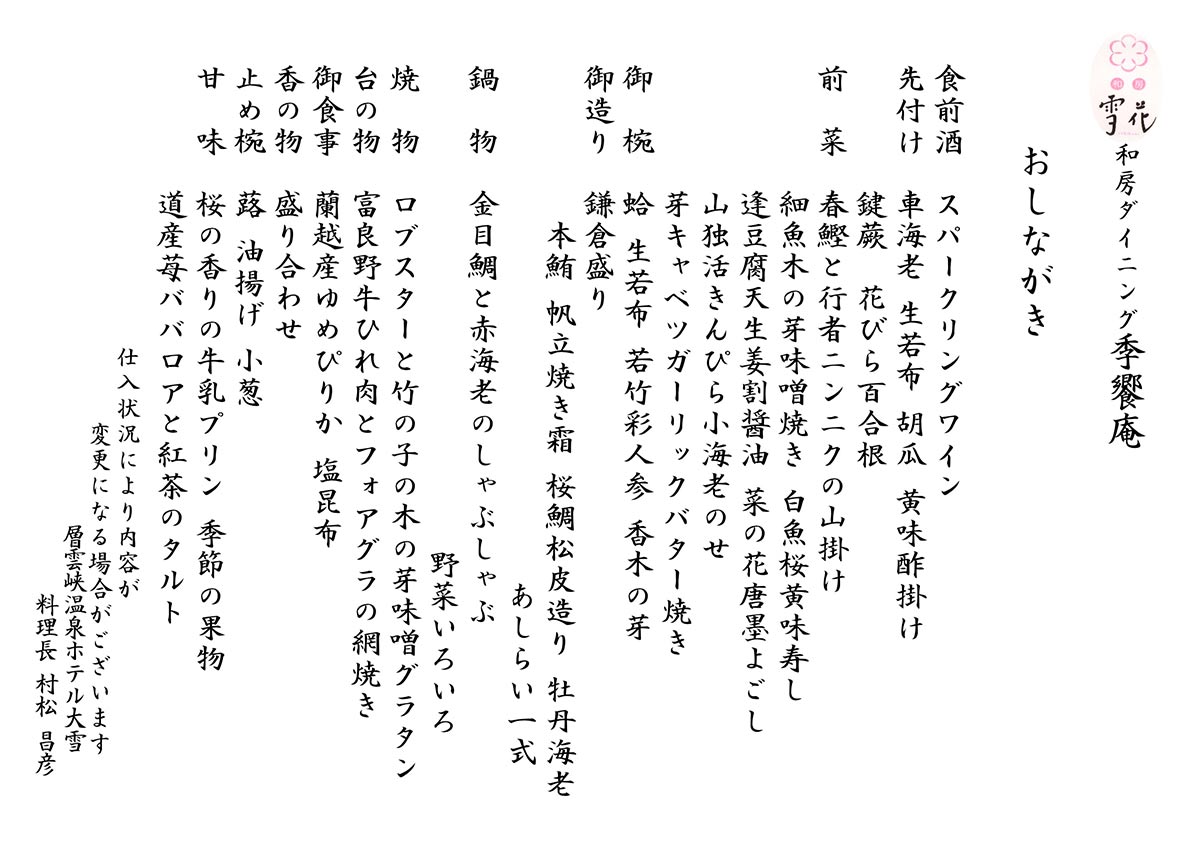 和房
雪花
和房ダイニング季饗庵
おしながき
食前酒 スパークリングワイン
先付け 車海老 生若布 胡瓜 黄味酢掛け
鍵蕨 花びら百合根
前菜 春鰹と行者ニンニクの山掛け
細魚木の芽味噌焼き 白魚桜黄味寿し
逢豆腐天生姜割醤油 菜の花唐墨よごし
山独活きんぴら小海老のせ
芽キャベツガーリックバター焼き
御椀 蛤 生若布 若竹彩人参 香木の芽
御造り 鎌倉盛り
本鮪 帆立焼き霜 桜鯛松皮造り 牡丹海老
あしらい一式
鍋物 金目鯛と赤海老のしゃぶしゃぶ
野菜いろいろ
焼物 ロブスターと竹の子の木の芽味噌グラタン
台の物 富良野牛ひれ肉とフォアグラの網焼き
御食事 蘭越産ゆめぴりか 塩昆布
香の物 盛り合わせ
止め椀 蕗 油揚げ 小葱
甘味 桜の香りの牛乳プリン 季節の果物
道産苺ババロアと紅茶のタルト
仕入状況により内容が
変更になる場合がございます
層雲峡温泉ホテル大雪
料理長 村松 昌彦